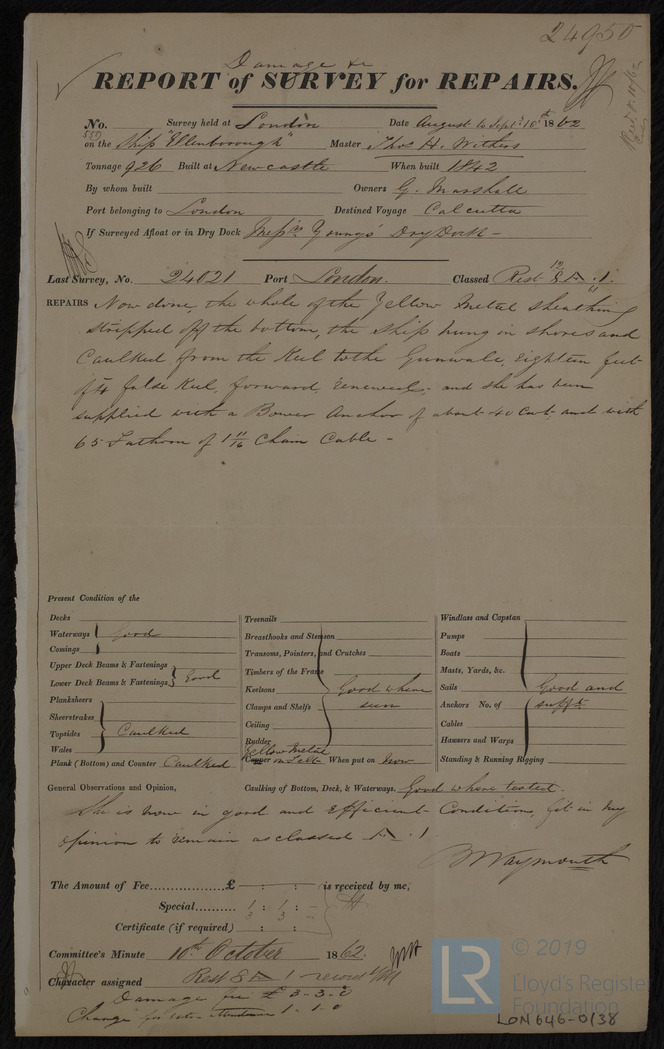 24950
Damage &c
REPORT of SURVEY for REPAIRS.
No. Survey held at London Date August to Septr 10th 1862
on the Ship "Ellenborough" Master Thos H. Withers
Tonnage 926 Built at Newcastle When built 1842
By whom built Owners G. Marshall
Port belonging to London Destined Voyage Calcutta
If Surveyed Afloat or in Dry Dock Messrs Youngs' Dry Dock –
Last Survey, No. 24021 Port London. Classed Rest
REPAIRS Now done, the whole of the Yellow Metal sheathing
stripped off the bottom, the ship hung in shores and
Caulked from the Keel to the Gunwale, Eighteen feet
of false Keel, forward, renewed – and she has been
supplied with a Bower Anchor of about 40 Cwt, and with
65 Fathom of 1 11/16 Chain Cable –
Present Condition of the
Decks
Waterways Good
Comings
Upper Deck Beams & Fastenings
Lower Deck Beams & Fastenings Good
Planksheers
Sheerstrakes
Topsides Caulked
Wales
Plank (Bottom) and Counter Caulked
Treenails
Breasthooks and Stemson
Transoms, Pointers, and Crutches
Timbers of the Frame
Keelsons Good where
Clamps and Shelfs seen
Ceiling
Rudder
Yellow Metal
Copper on Felt When put on Now
Windlass and Capstan
Pumps
Boats
Masts, Yards, &c.
Sails Good and
Anchors No. of sufft
Cables
Hawsers and Warps
Standing & Running Rigging
General Observations and Opinion, Caulking of Bottom, Deck, & Waterways. Good where tested.
She is now in good and Efficient Condition, fit in my
opinion to remain as classed A 1
B Waymouth
The Amount of Fee............... £ – : – : – is received by me,
Special.......... 1 : 1 : –
3 : 3 : –
Certificate (if required) : :
Committee's Minute 10th October 1862.
Character assigned Rest
Damage fee £ 3-3-0
Change for 1-1-0
LR
© 2019
Lloyd's Register
Foundation
LON646-0138